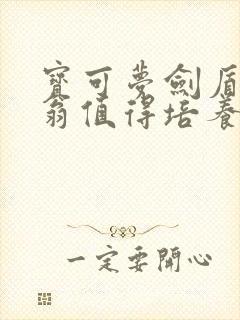 寶可夢劍盾
翁值得培養
一定要開心